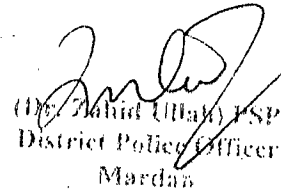 (Dr. Zahid Ullah) PSP
District Police Officer
Mardan